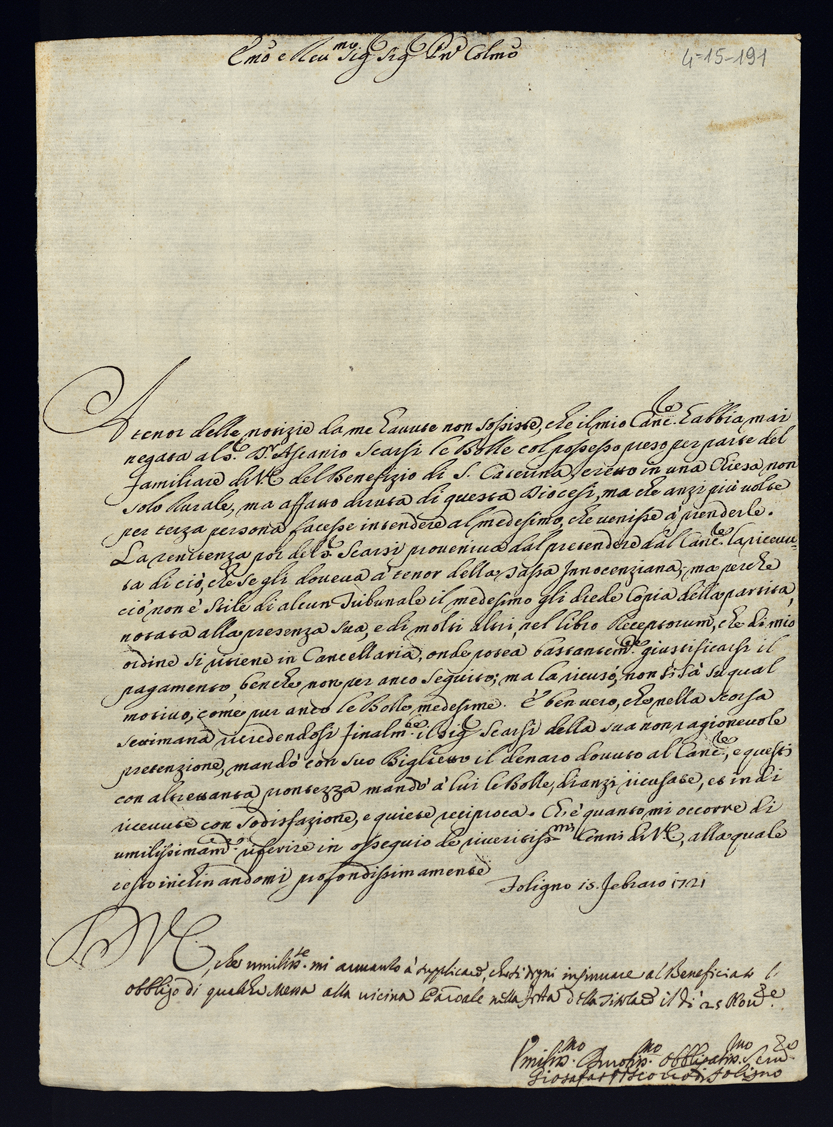 Emo e Reu.mo Sig.r Sig.r Pne Colmo
4-15-191
A tenor delle notizie da me havute non sossiste, che il mio Canc.re habbia mai
negata al S.r D. Ascanio Scarsi le Bolle col possesso preso per parte del
familiare di VE del Benefizio di S. Caterina, eretto in una Chiesa non
solo Rurale, ma affatto diruta di questa Diocesi, ma che anzi più volte
per terza persona facesse intendere al medesimo, che venisse à prenderle.
La renitenza poi del S.r Scarsi proveniva dal pretendere dal Canc.re la riceuu-
ta di ciò, che se gli doveva à tenor della Tassa Innocenziana; ma perche
ciò non è stile di alcun Tribunale il medesimo gli diede Copia della partita,
notata alla presenza sua, e di molti altri, nel libro Receptorum, che di mio
ordine si ritiene in Cancellaria, onde potea bastantem.te giustificarsi il
pagamento, benche non per anco seguito; ma la ricusò, non si sà su qual
motivo, come per anco le Bolle medesime. È ben vero, che nella scorsa
settimana ricredendosi finalm.te il Sig.r Scarsi della sua non ragionevole
pretenzione, mandò con suo Biglietto il denaro dovuto al Canc.re, e questi
con altrettanta prontezza mandò à lui le Bolle, dianzi ricusate, et indi
riceuute con sodisfazione, e quiete reciproca. Ch'è quanto mi occorre di
umilissimam.te riferire in ossequio de riveritiss.mi Cenni di VE, alla quale
resto inchinandomi profondissimamente
Foligno 15. Febraro 1721
DVE, che umiliss.te mi avvanzo à supplicare, che si degni insinuare al Beneficiato l'
obbligo di qualche Messa alla vicina Parocale nella festa della Titolare il dì 25 Nou.re
Umiliss.mo Devotiss.mo Obbligatiss.mo Seru.re
Giosafat Vescovo di Foligno